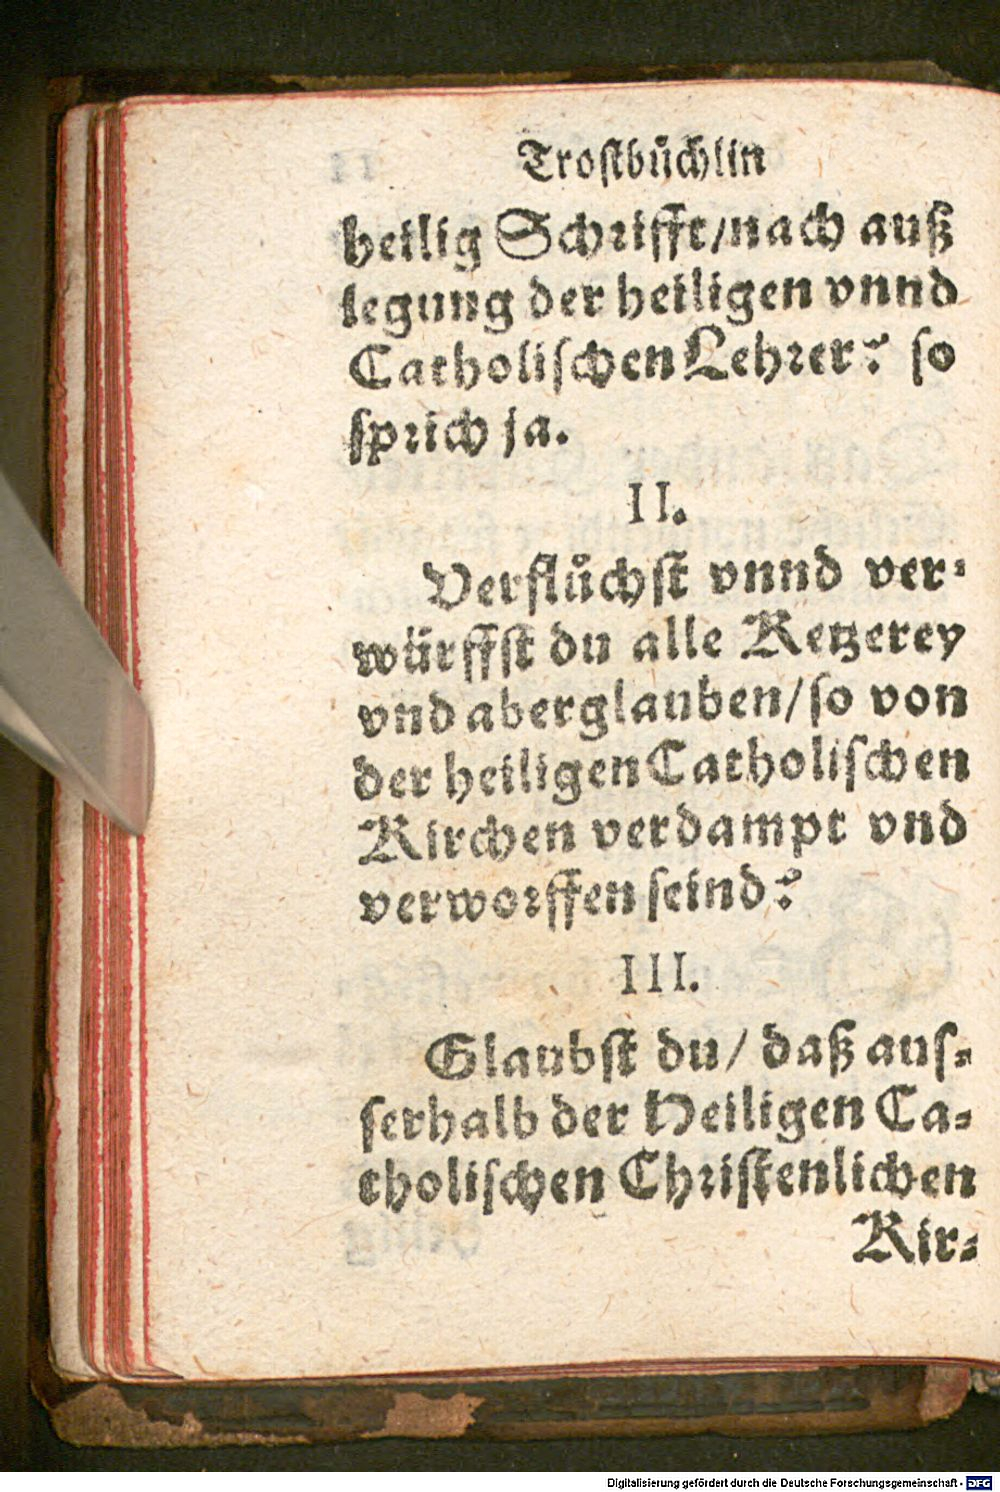 Trostbuͤchlin
heilig Schrifft/nach auß
legung der heiligen vnnd
Catholischen Lehrer? so
sprich ja.
II.
Verfluͤchst vnnd ver-
wuͤrffst du alle Ketzerey
vnd aberglauben/so von
der heiligen Catholischen
Kirchen verdampt vnd
verworffen seind?
III.
Glaubst du/ daß aus-
serhalb der Heiligen Ca-
tholischen Christenlichen
Kir-
Digitalisierung gefördert durch die Deutsche Forschungsgemeinschaft - DFG